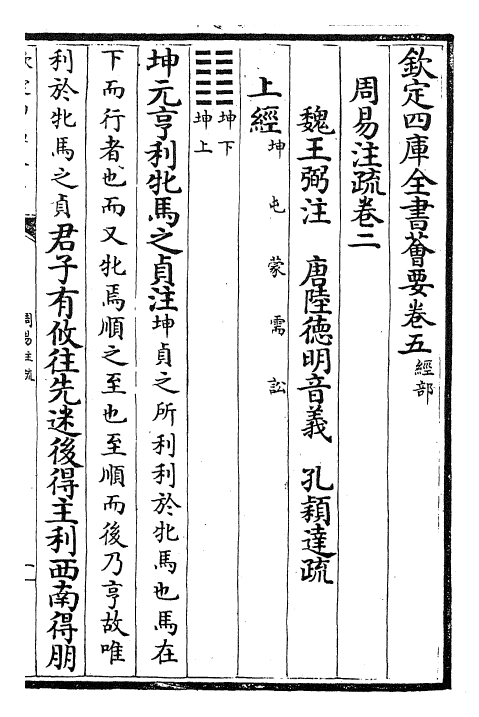 欽定四庫全書薈要卷五 經部
周易注疏卷二
魏王弼注 唐陸德明音義 孔穎達疏
上經 坤 屯 蒙 需 訟
坤下
坤上
坤元亨利牝馬之貞注坤貞之所利利於牝馬也馬在
下而行者也而又牝焉順之至也至順而後乃亨故唯
利於牝馬之貞君子有攸往先迷後得主利西南得朋
周易注疏